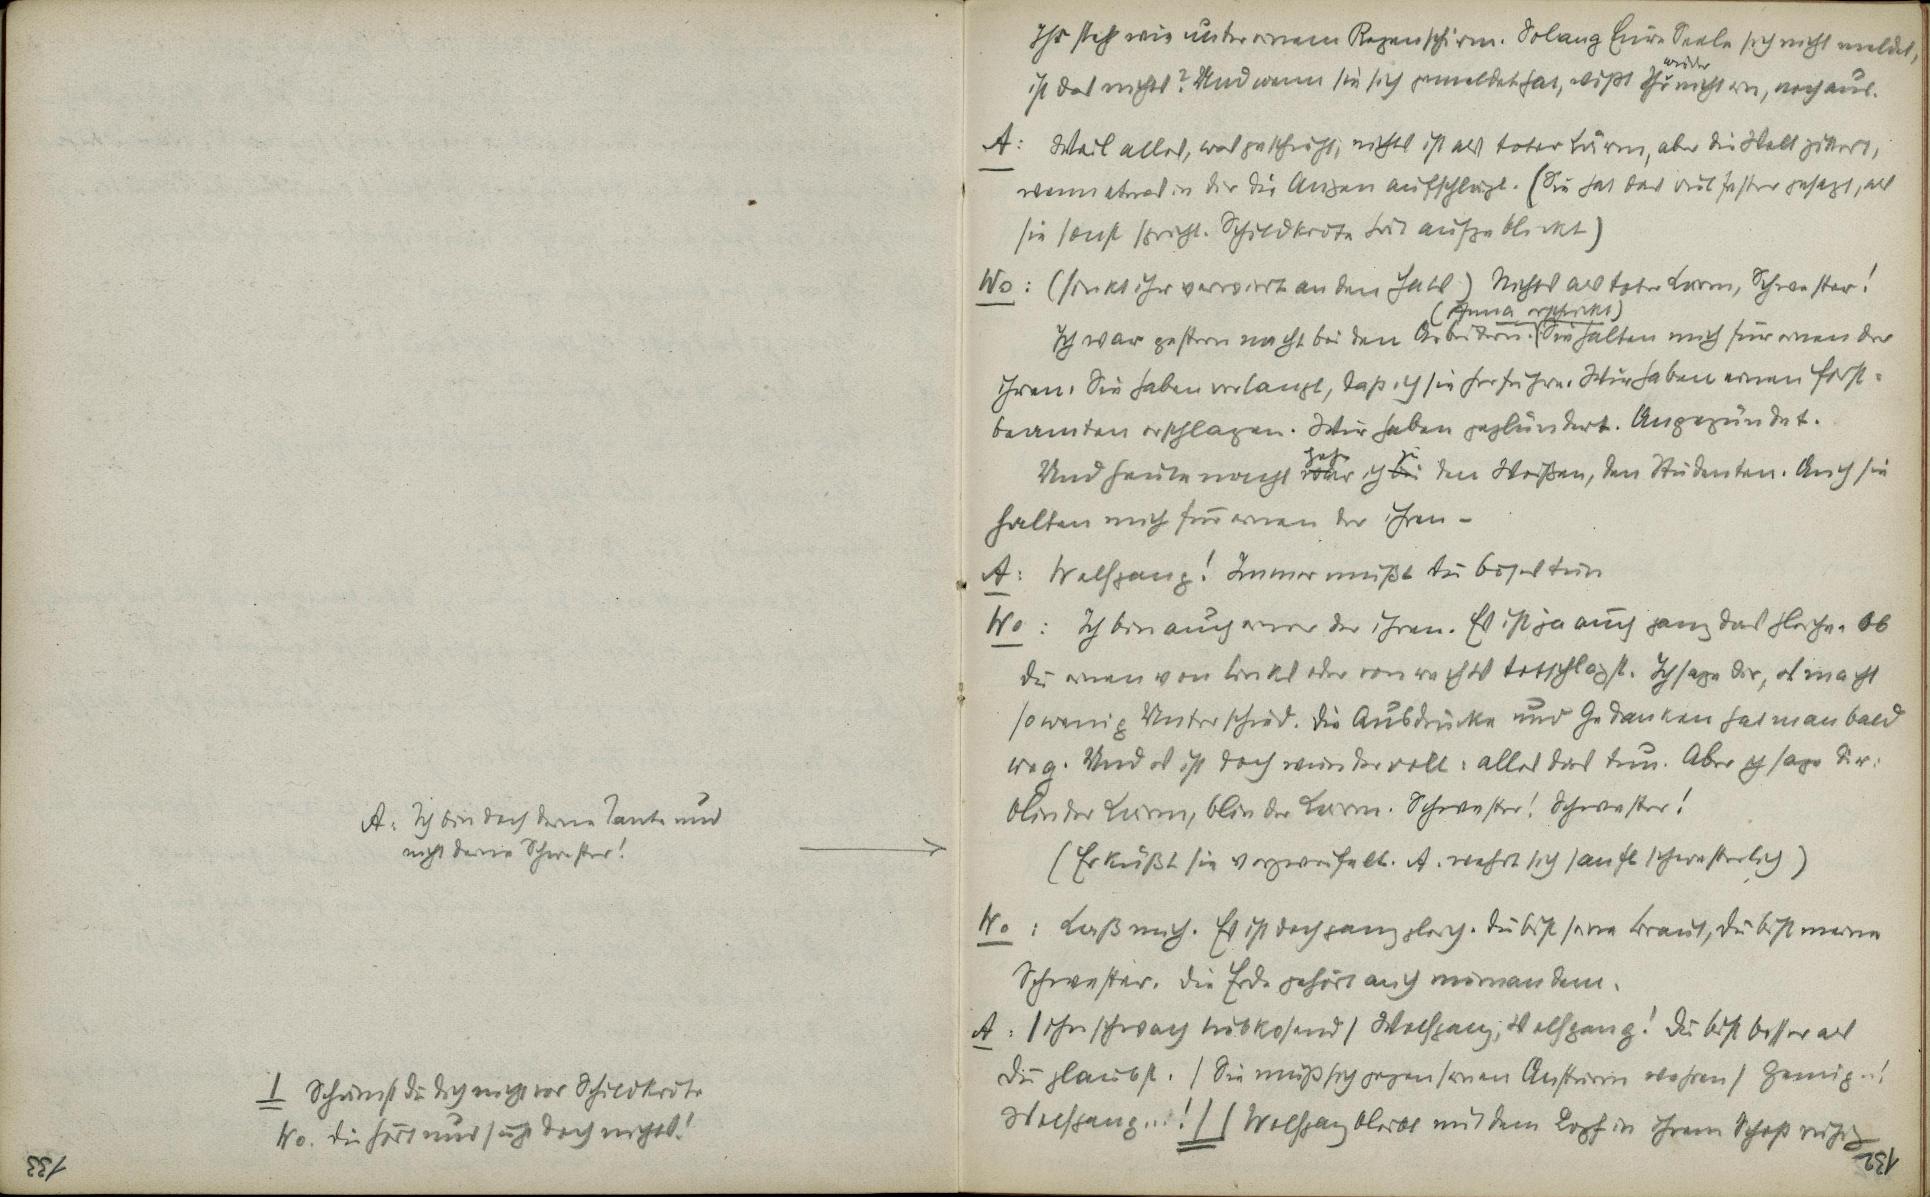 A: Ich bin doch deine Tante und
nicht deine Schwester!
I Schämst du dich nicht vor Schildkröte
Wo. Die hört und sieht doch nichts!
133
Ihr steht wie unter einem Regenschirm. Solang Eure Seele sich nicht meldet,
ist das nichts? Und wenn sie sich gemeldet hat, wißt Ihr weder nicht ein, noch aus.
A: Weil alles, was geschieht, nichts ist als toter Lärm, aber die Welt zittert,
wenn etwas in dir die Augen aufschlägt. (Sie hat das viel fester gesagt, als
sie sonst spricht. Schildkröte hat aufgeblickt)
Wo: (sinkt ihr verwirrt an den Hals) Nichts als toter Lärm, Schwester!
(Anna erschrickt)
Ich war gestern nacht bei den Arbeitern. Sie halten mich für einen der
ihren. Sie haben verlangt, daß ich sie herführe. Wir haben einen Forst-
beamten erschlagen. Wir haben geplündert. Angezündet.
gehe zu
Und heute nacht war ich bei den Weißen, den Studenten. Auch sie
halten mich für einen der ihren –
A: Wolfgang! Immer mußt du böses tun
Wo: Ich bin auch einer der ihren. Es ist ja auch ganz das gleiche. Ob
du einen von links oder von rechts totschlägst. Ich sage dir, es macht
so wenig Unterschied. Die Ausdrücke und Gedanken hat man bald
weg. Und es ist doch wundervoll: alles das tun. Aber ich sage dir:
blinder Lärm, blinder Lärm. Schwester! Schwester!
(Er küßt sie verzweifelt. A. wehrt sich sanft schwesterlich)
Wo: Laß mich. Es ist doch ganz gleich. Du bist seine Braut, du bist meine
Schwester. Die Erde gehört auch niemandem.
A: / ihn schwach liebkosend / Wolfgang, Wolfgang! Du bist besser als
du glaubst. / Sie muß sich gegen seinen Ansturm wehren / Genug..!
Wolfgang...! / / Wolfgang bleibt mit dem Kopf in ihrem Schoß ruhig
132